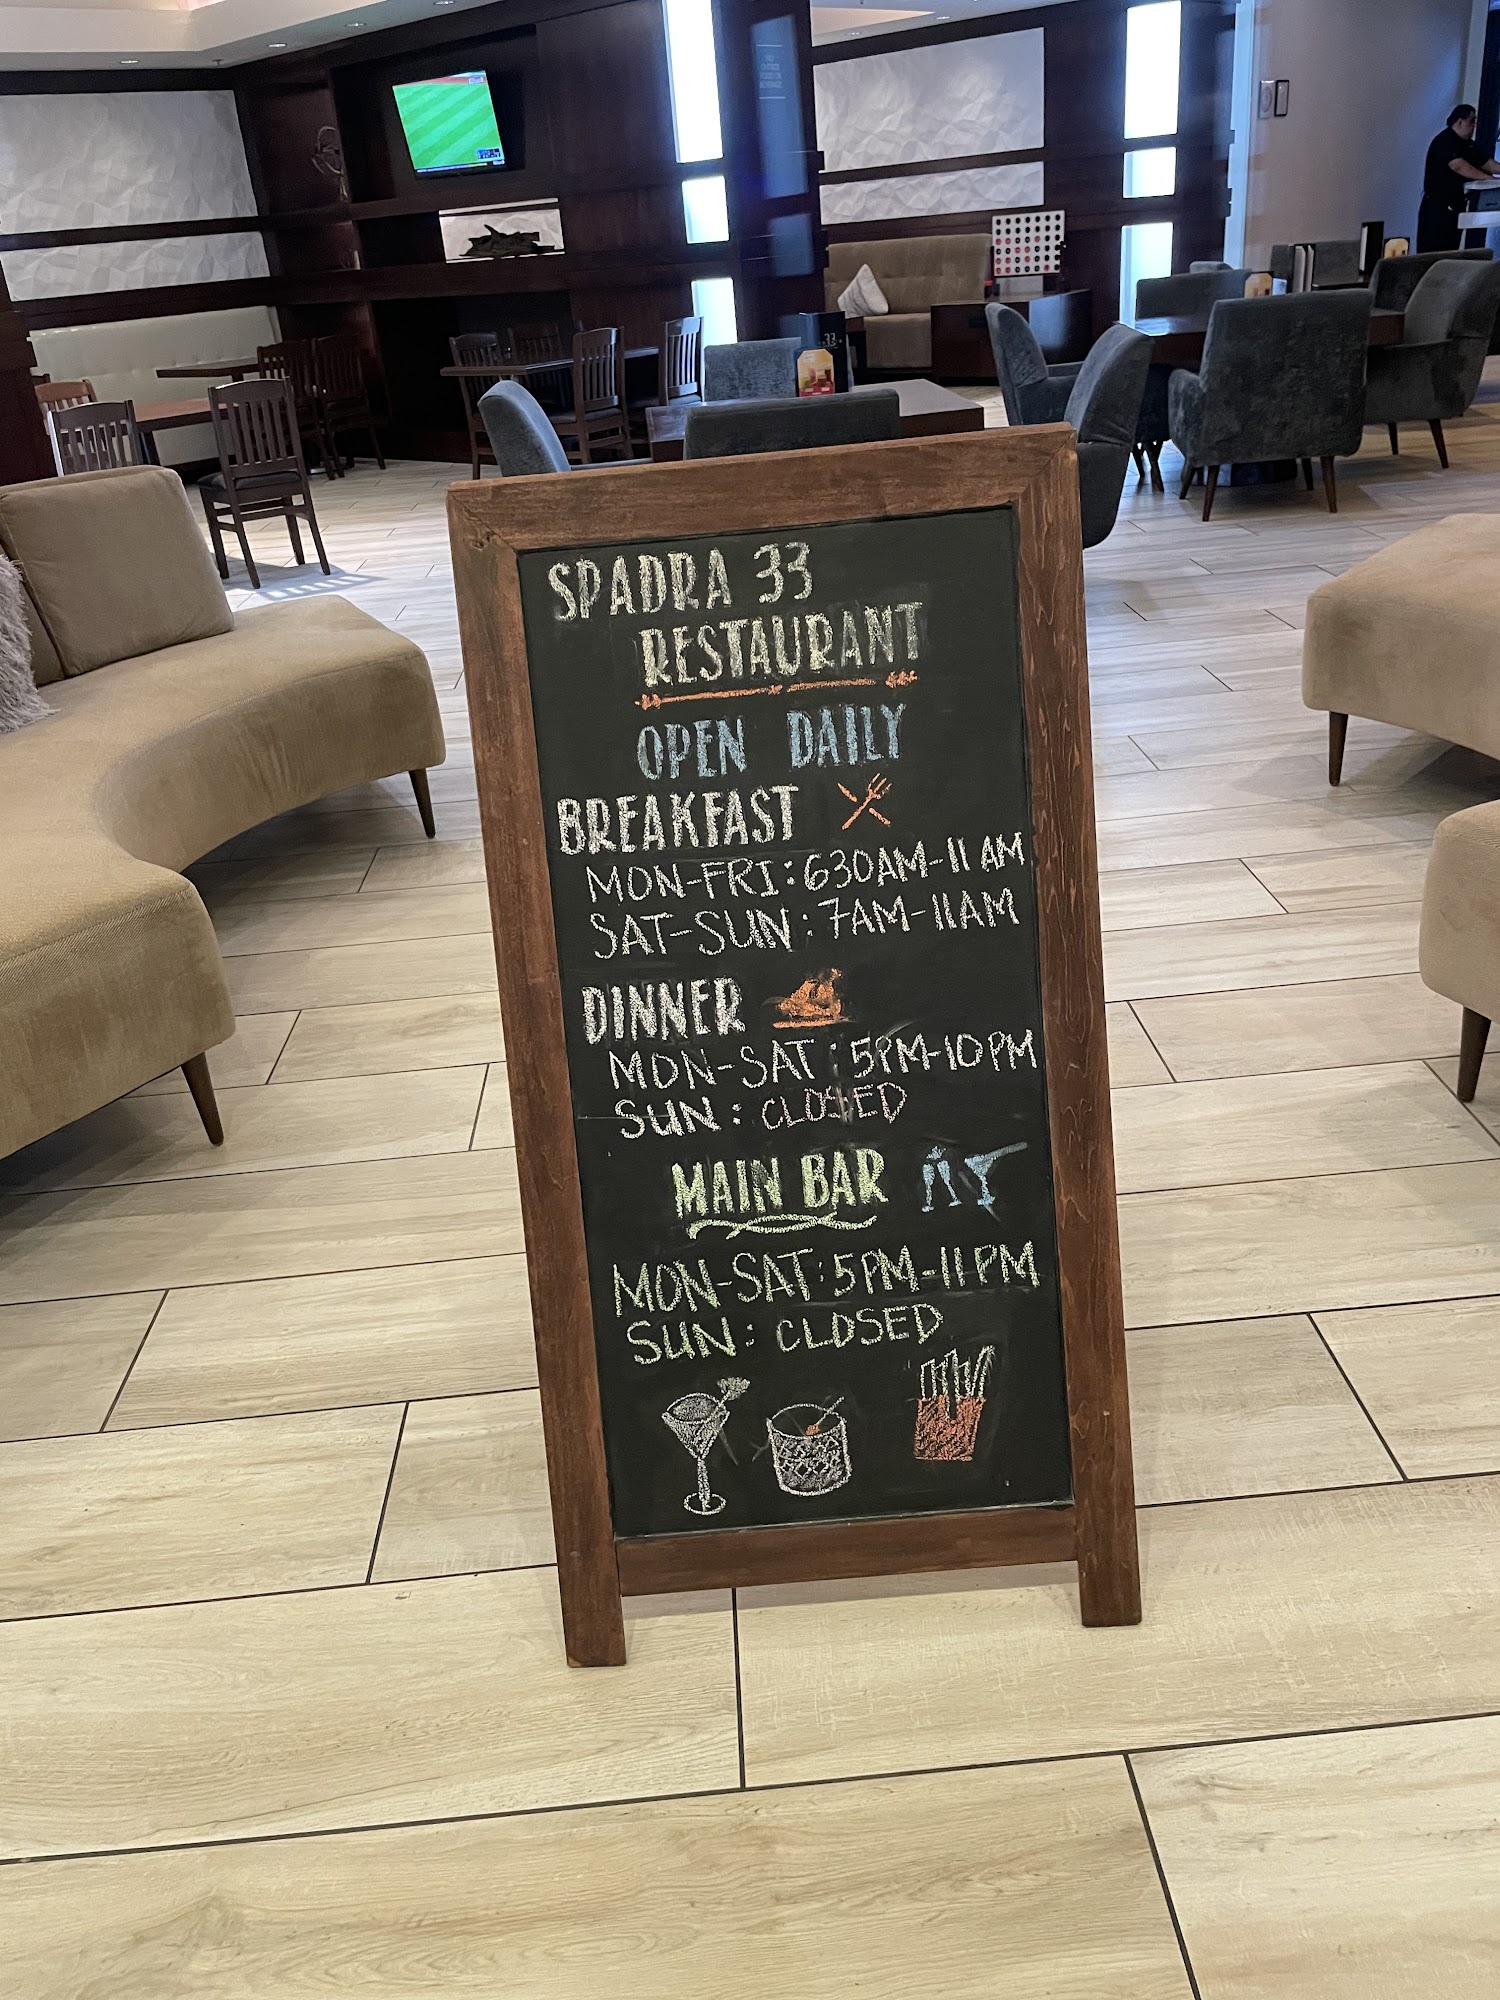 SPADRA 33
RESTAURANT
OPEN DAILY
BREAKFAST
MON-FRI: 630AM-11AM
SAT-SUN: 7AM-11AM
DINNER
MON-SAT: 5PM-10PM
SUN: CLOSED
MAIN BAR
MON-SAT: 5PM-11PM
SUN: CLOSED
33